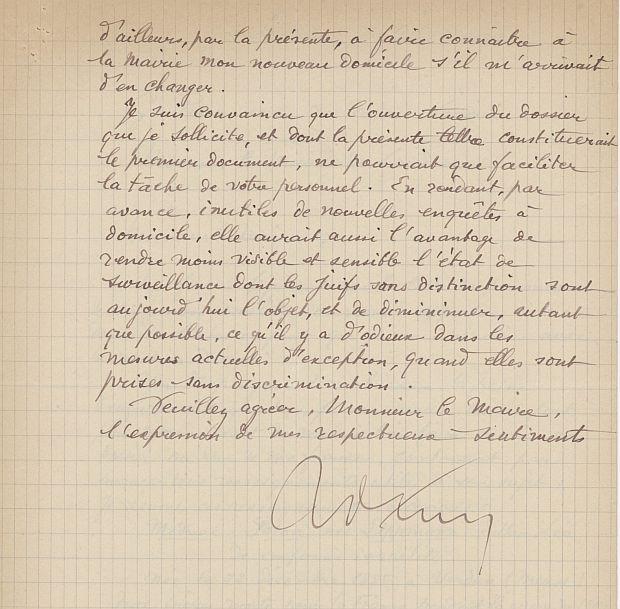 d'ailleurs, par la présente, à faire connaître à
la Mairie mon nouveau domicile s'il m'arrivait
d'en changer.
Je suis convaincu que l'ouverture du dossier
que je sollicite, et dont la présente lettre constituerait
le premier document, ne pourrait que faciliter
la tâche de votre personnel. En rendant, par
avance, inutiles de nouvelles enquêtes à
domicile, elle aurait aussi l'avantage de
rendre moins visible et sensible l'état de
surveillance dont les juifs sans distinction sont
aujourd'hui l'objet, et de diminuer, autant
que possible, ce qu'il y a d'odieux dans les
mesures actuelles d'exception, quand elles sont
prises sans discrimination.
Veuillez agréer, Monsieur le Maire,
l'expression de mes respectueux sentiments